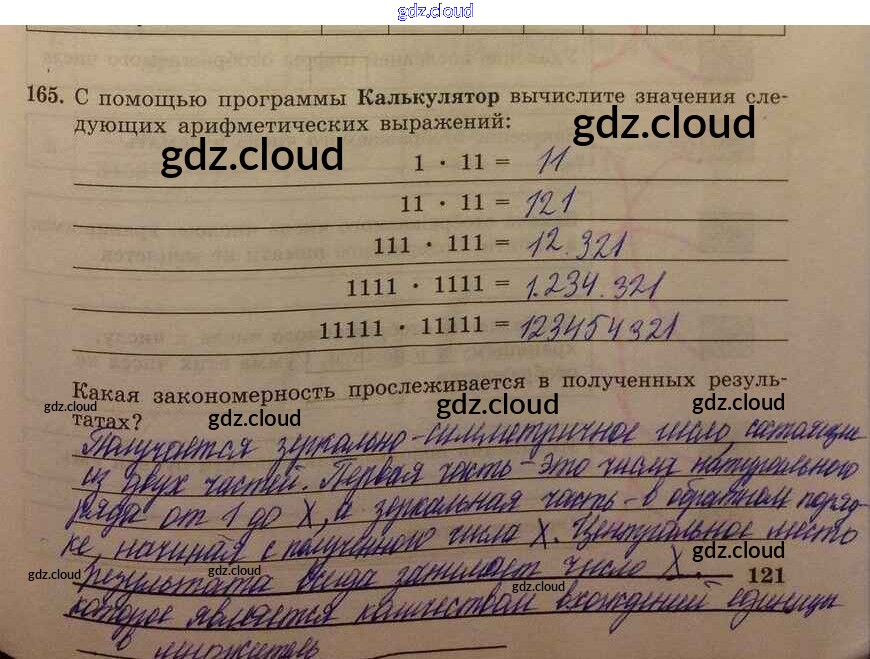 gdz.cloud
165. С помощью программы Калькулятор вычислите значения сле-
дующих арифметических выражений:
gdz.cloud
gdz.cloud
1 · 11 = 11
11 · 11 = 121
111 · 111 = 12.321
1111 · 1111 = 1.234.321
11111 · 11111 = 123454321
Какая закономерность прослеживается в полученных резуль-
татах?
gdz.cloud
gdz.cloud
gdz.cloud
gdz.cloud
Получается зеркально-симметричное число, состоящие
из двух частей. Первая часть - это числа натурального
ряда от 1 до X, а зеркальная часть - в обратном поряд-
ке, начиная с полученного числа X. Центральное место
gdz.cloud
результата всегда занимает число X.
gdz.cloud
gdz.cloud
121
gdz.cloud
которое является количеством вхождений единицы
в множитель